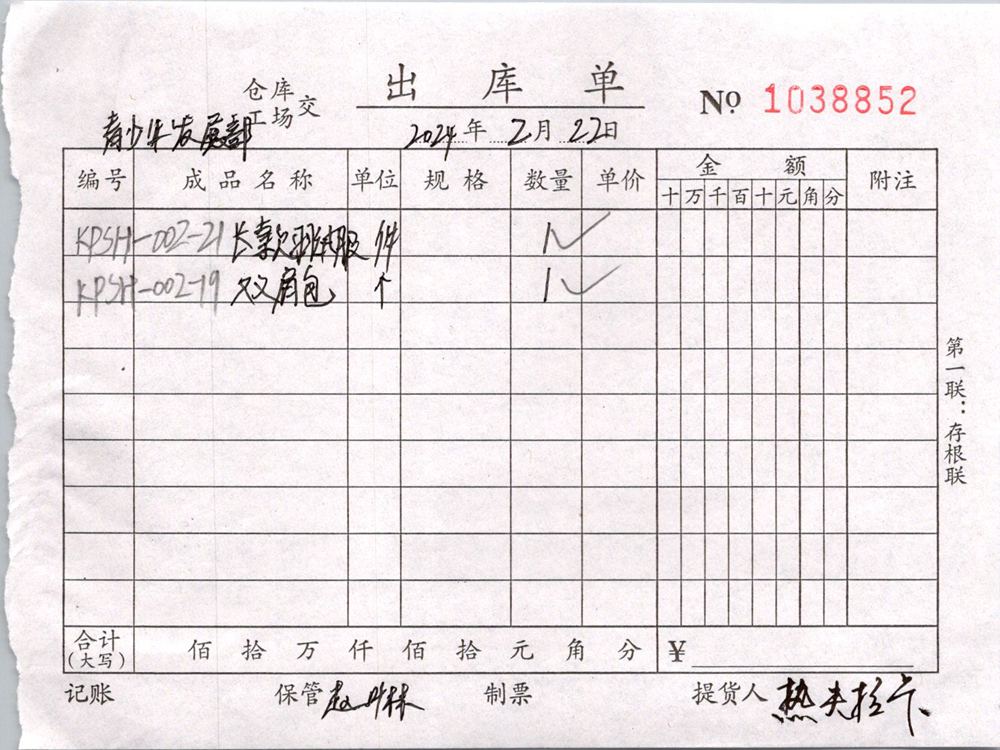 仓库
工场 交
出库单
№ 1038852
青少年发展部
2024年2月22日
编号 成品名称 单位 规格 数量 单价 金额 附注
十万千百十元角分
KPSH-002-21 长款羽绒服 件 1
KPSH-002-19 双肩包 个 1
第一联：存根联
合计（大写） 佰拾万仟佰拾元角分 ¥
记账 保管 制票 提货人 热夫拉卡